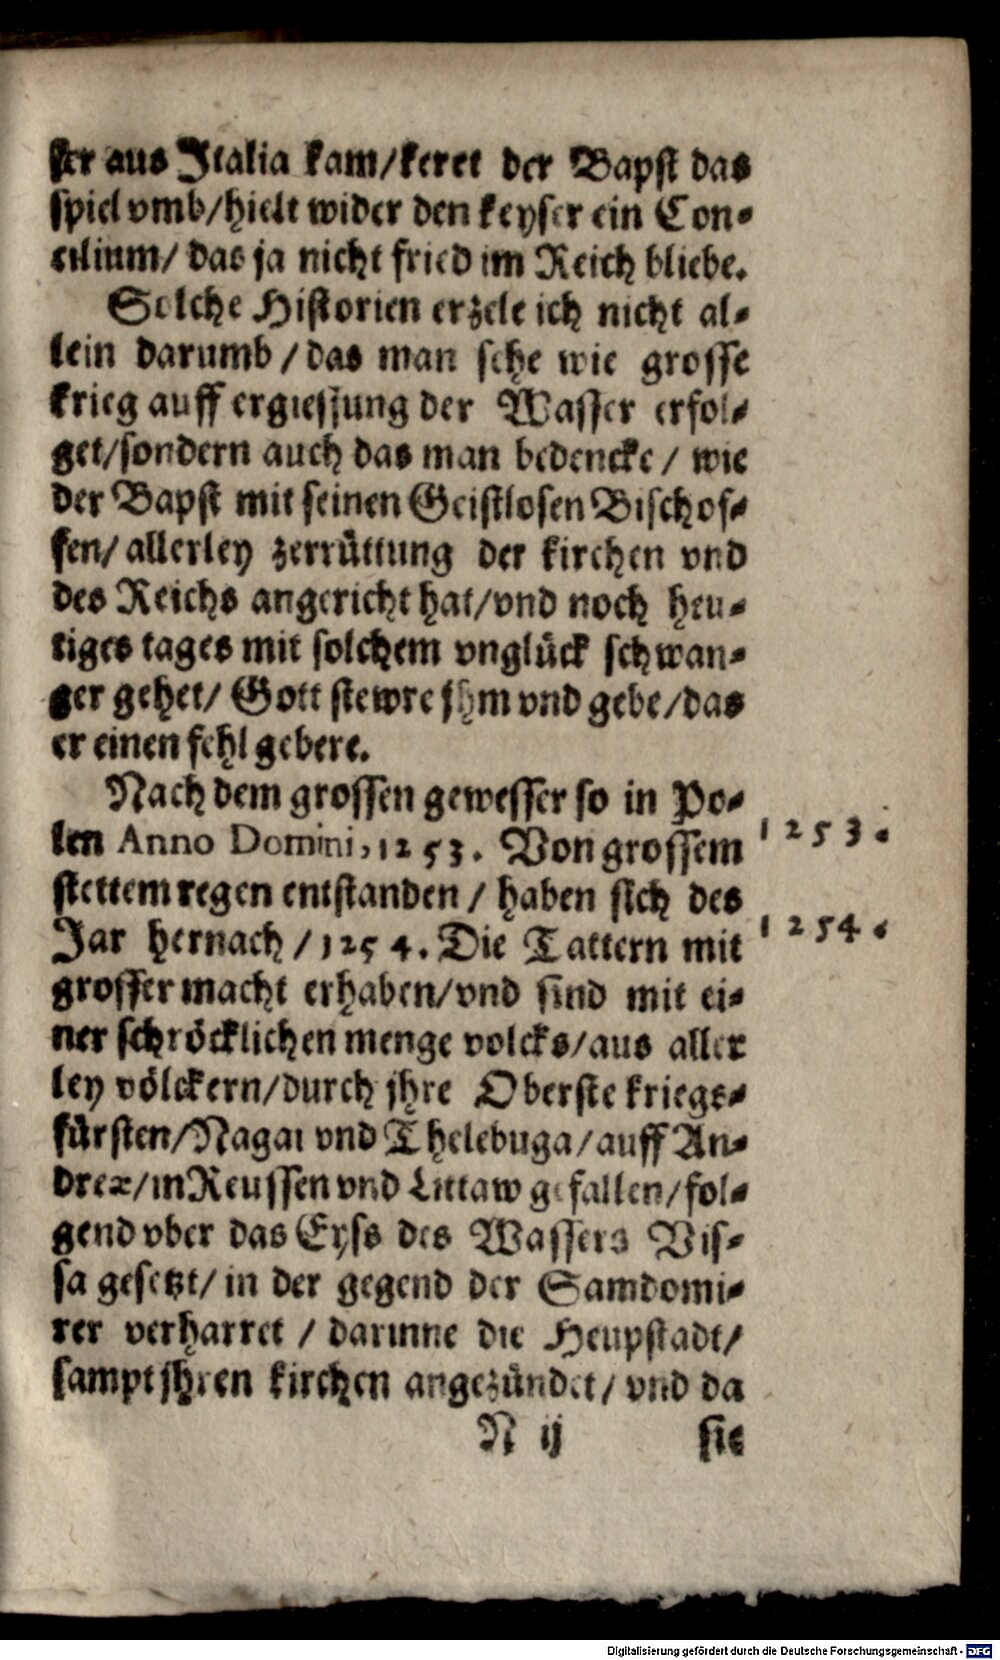 ser aus Italia kam/keret der Bapst das
spiel vmb/hielt wider den keyser ein Con-
cilium/ das ja nicht fried im Reich bliebe.
Solche Historien erzele ich nicht al-
lein darumb / das man sehe wie grosse
krieg auff ergiessung der Wasser erfol-
get/sondern auch das man bedencke / wie
der Bapst mit seinen Geistlosen Bischof-
fen/ allerley zerrüttung der kirchen vnd
des Reichs angericht hat/vnd noch heu-
tiges tages mit solchem vnglück schwan-
ger gehet/ Gott stewre jhm vnd gebe/das
er einen fehl gebere.
Nach dem grossen gewesser so in Po-
len Anno Domini, 1253. Von grossem
stettem regen entstanden / haben sich des
1253.
Jar hernach / 1254. Die Tattern mit
1254.
grosser macht erhaben/vnd sind mit ei-
ner schröcklichen menge volcks/aus aller
ley völckern/durch jhre Oberste kriegs-
fürsten/Nagai vnd Thelebuga/auff An-
dreæ/in Reussen vnd Littaw gefallen/fol-
gend vber das Eyss des Wassers Vis-
sa gesetzt/ in der gegend der Samdomi-
rer verharret / darinne die Heupstadt/
sampt jhren kirchen angezündet/ vnd da
N ij sie
Digitalisierung gefördert durch die Deutsche Forschungsgemeinschaft - DFG